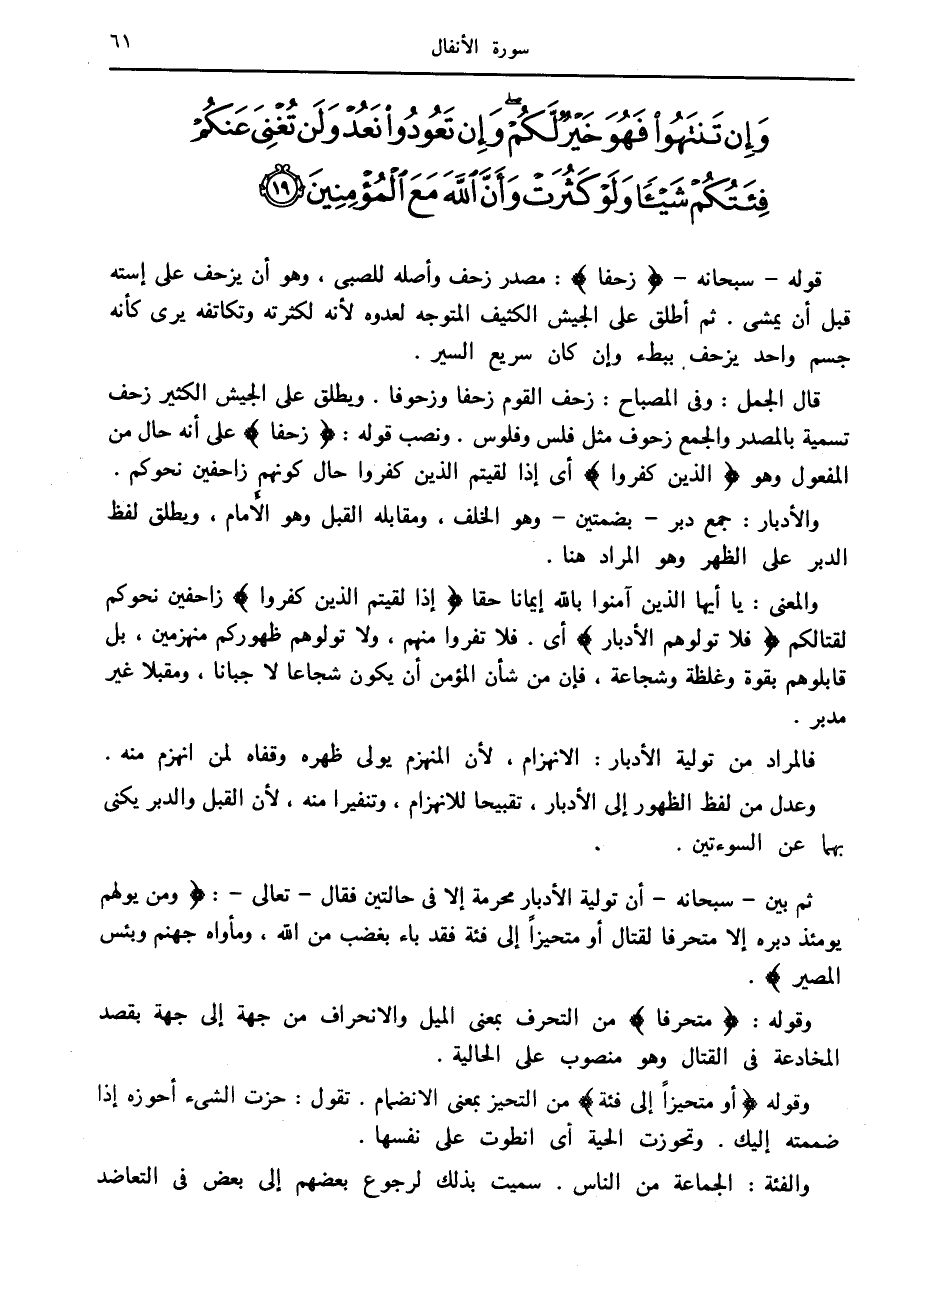 سورة الأنفال ٦١
وَإِن تَنتَهُواْ فَهُوَ خَيْرٌ لَّكُمْ ۖ وَإِن تَعُودُواْ نَعُدْ وَلَن تُغْنِىَ عَنكُمْ
فِئَتُكُمْ شَيْـًٔا وَلَوْ كَثُرَتْ وَأَنَّ ٱللَّهَ مَعَ ٱلْمُؤْمِنِينَ ١٩
قوله – سبحانه – ﴿ زحفا ﴾ : مصدر زحف وأصله للصبى ، وهو أن يزحف على إسته
قبل أن يمشى . ثم أطلق على الجيش الكثيف المتوجه لعدوه لأنه لكثرته وتكاتفه يرى كأنه
جسم واحد يزحف ببطء وإن كان سريع السير .
قال الجمل : وفى المصباح : زحف القوم زحفا وزحوفا . ويطلق على الجيش الكثير زحف
تسمية بالمصدر والجمع زحوف مثل فلس وفلوس . ونصب قوله : ﴿ زحفا ﴾ على أنه حال من
المفعول وهو ﴿ الذين كفروا ﴾ أى إذا لقيتم الذين كفروا حال كونهم زاحفين نحوكم .
والأدبار : جمع دبر – بضمتين – وهو الخلف ، ومقابله القبل وهو الأمام ، ويطلق لفظ
الدبر على الظهر وهو المراد هنا .
والمعنى : يا أيها الذين آمنوا بالله إيمانا حقا ﴿ إذا لقيتم الذين كفروا ﴾ زاحفين نحوكم
لقتالكم ﴿ فلا تولوهم الأدبار ﴾ أى . فلا تفروا منهم ، ولا تولوهم ظهوركم منهزمين ، بل
قابلوهم بقوة وغلظة وشجاعة ، فإن من شأن المؤمن أن يكون شجاعا لا جبانا ، ومقبلا غير
مدبر .
فالمراد من تولية الأدبار : الانهزام ، لأن المنهزم يولى ظهره وقفاه لمن انهزم منه .
وعدل من لفظ الظهور إلى الأدبار ، تقبيحا للانهزام ، وتنفيرا منه ، لأن القبل والدبر يكنى
بهما عن السوءتين .
ثم بين – سبحانه – أن تولية الأدبار محرمة إلا فى حالتين فقال – تعالى – : ﴿ ومن يولهم
يومئذ دبره إلا متحرفا لقتال أو متحيزاً إلى فئة فقد باء بغضب من الله ، ومأواه جهنم وبئس
المصير ﴾ .
وقوله : ﴿ متحرفا ﴾ من التحرف بمعنى الميل والانحراف من جهة إلى جهة بقصد
المخادعة فى القتال وهو منصوب على الحالية .
وقوله ﴿ أو متحيزاً إلى فئة ﴾ من التحيز بمعنى الانضمام . تقول : حزت الشىء أحوزه إذا
ضممته إليك . وتحوزت الحية أى انطوت على نفسها .
والفئة : الجماعة من الناس . سميت بذلك لرجوع بعضهم إلى بعض فى التعاضد